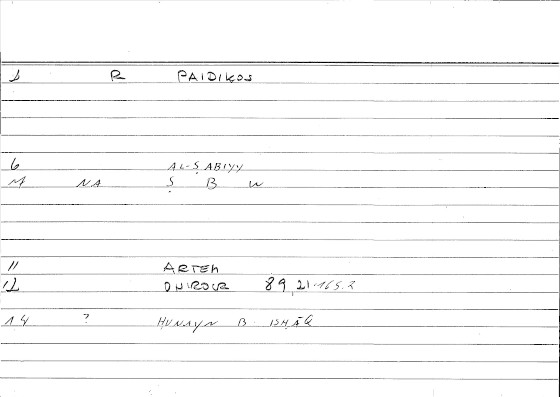 1 R PAIDIKOS
6 AL-ṢABIYY
M NA Ṣ B W
11 ARTEM
12 ONIROCR 89,21-165.2
14 ? ḤUNAYN B ISḤĀQ